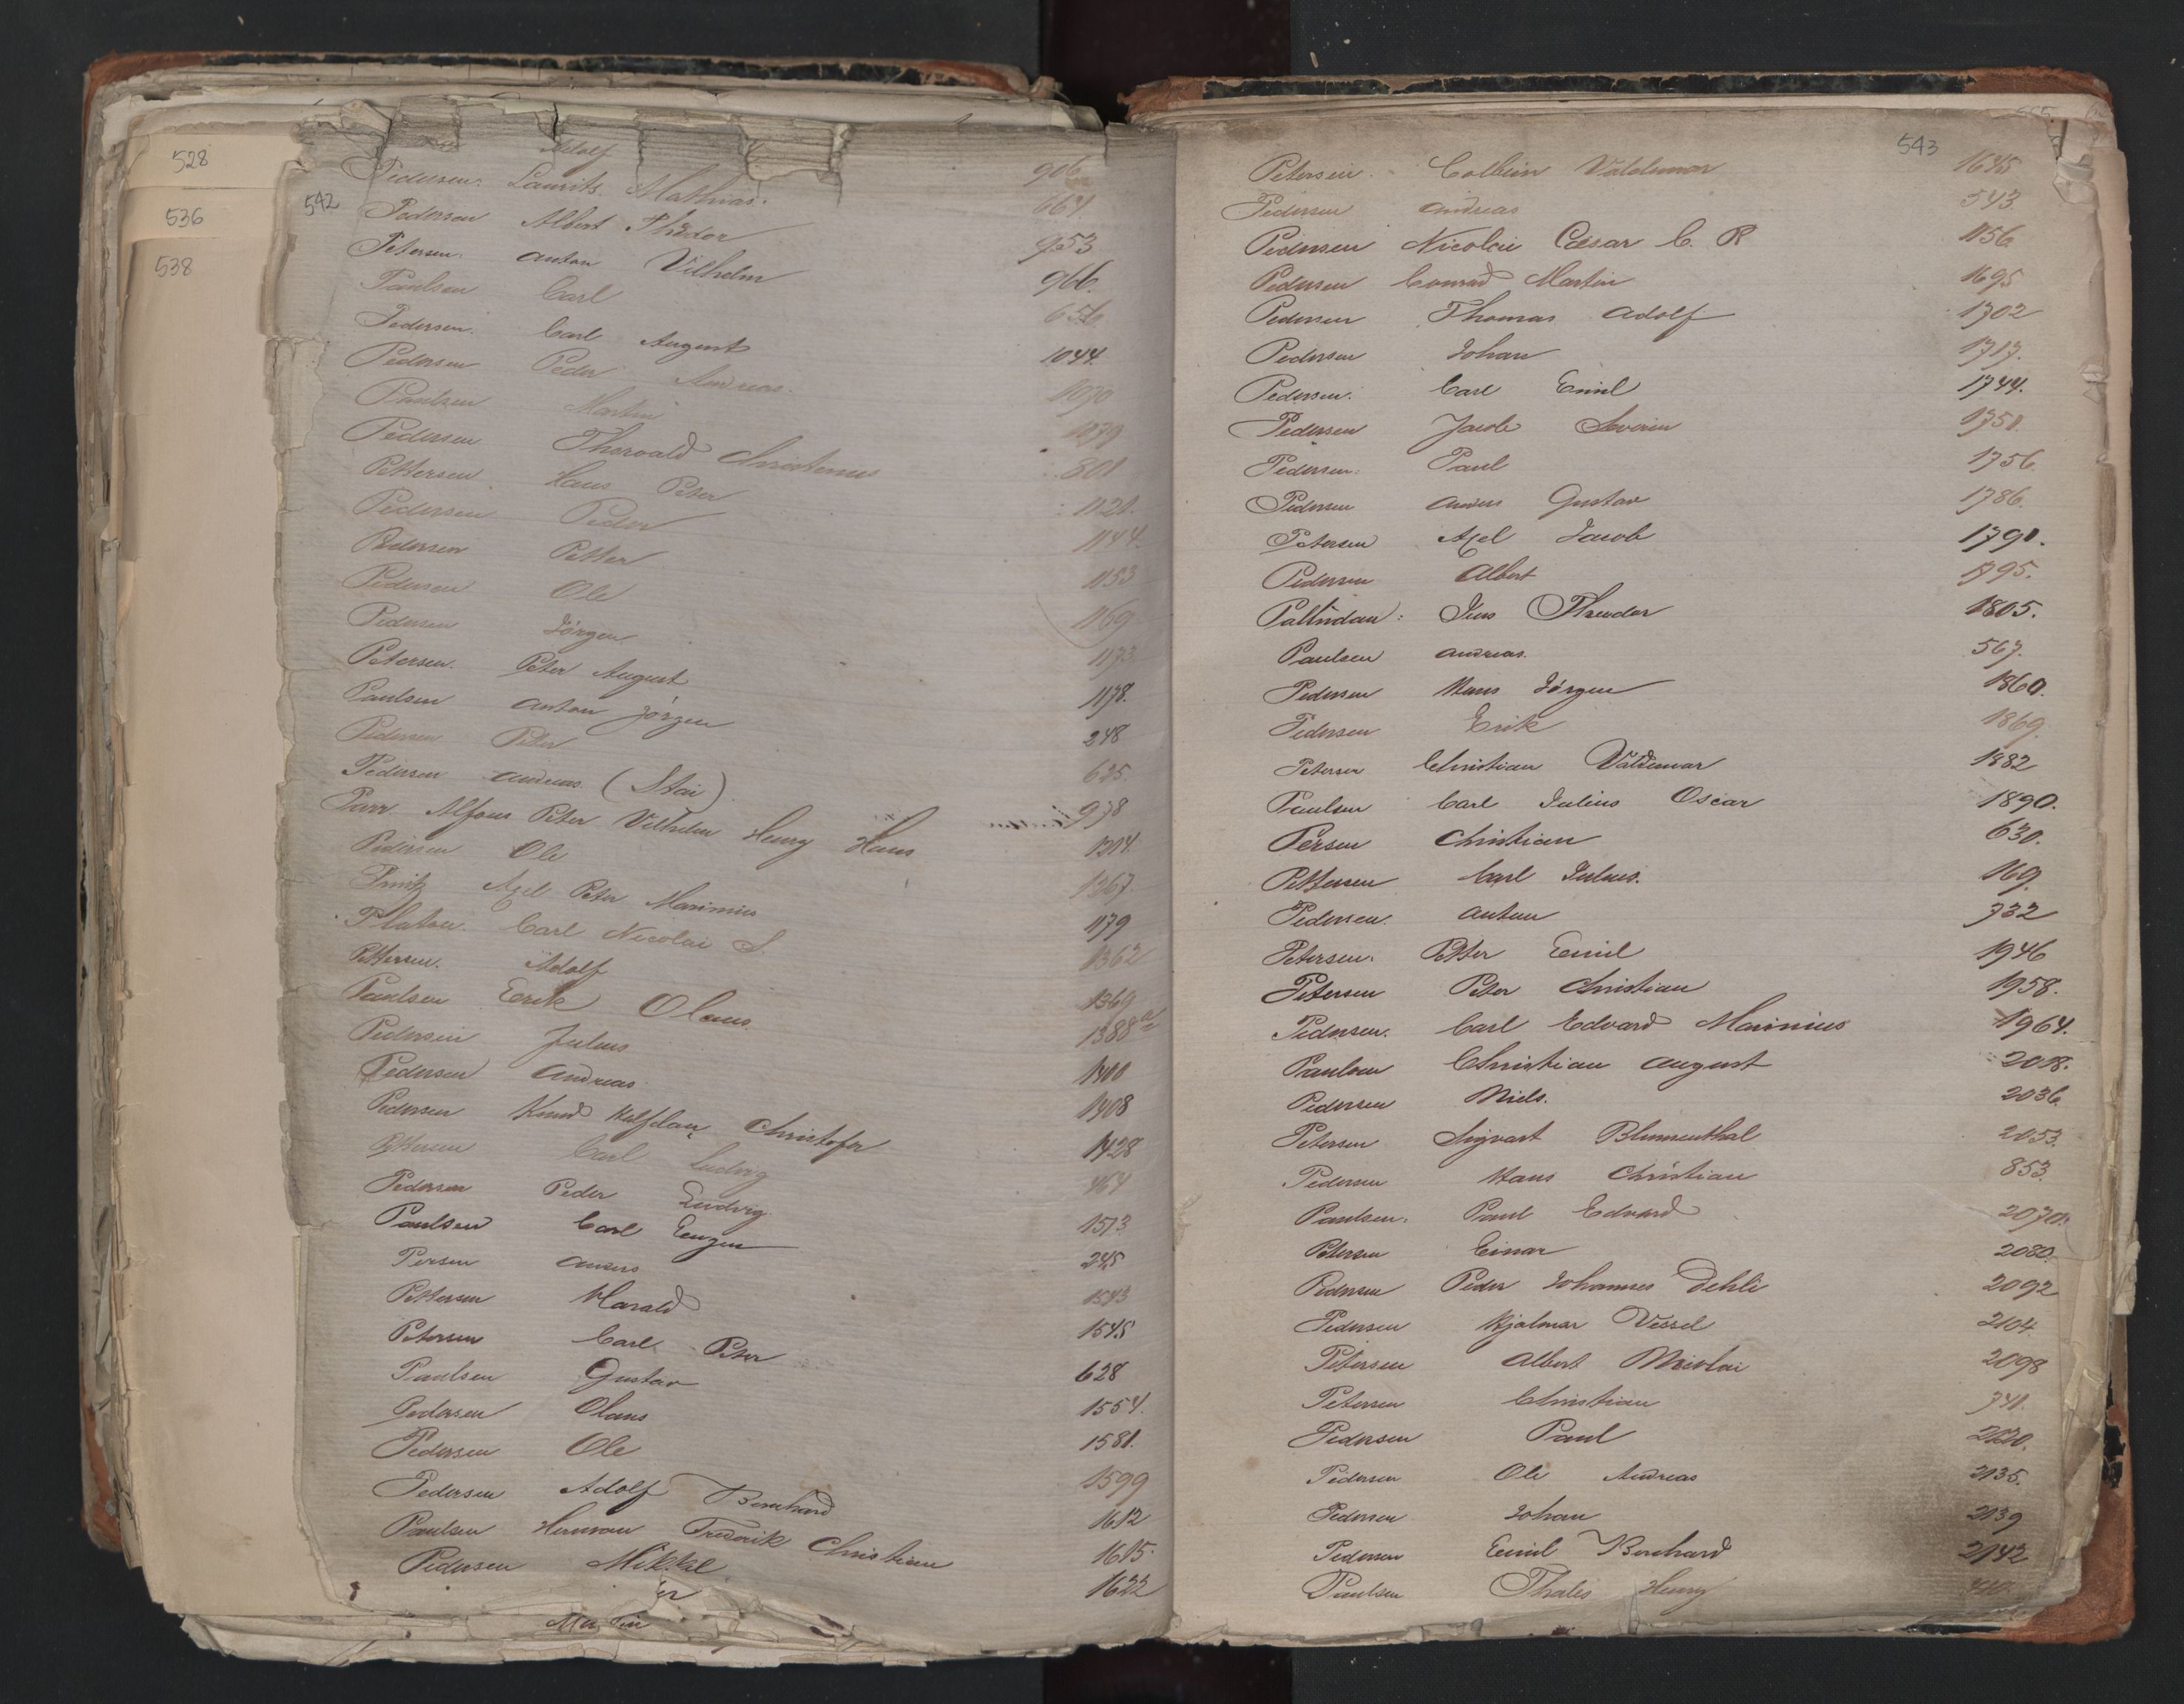 528
536
538
542
Adolf 906
Pedersen. Laurits Mathias. 664.
Pedersen Albert Thedor 953
Petersen. Anton Vilhelm 966.
Paulsen Carl
Pedersen. Carl August 1044.
Pedersen Peder Andreas. 1070
Paulsen Martin 1079
Pedersen Thorvald Christernus 801
Pettersen. Hans Peter 1121.
Pedersen Peder 1144.
Pedersen Petter 1153
Pedersen Ole 1169
Pedersen Jørgen 1173
Petersen. Peter August 1178.
Paulsen Anton Jørgen 248
Pedersen Peter 625.
Pedersen Andreas (Stai) 978
Parr Alfons Peter Vilhelm Henry Hans
Pedersen Ole 1267.
Axel Peter Marinius 1179
Platou. Carl Nicolai S. 1362
Pettersen. Adolf 1369
Paulsen Erik Olaus. 1388
Pedersen Julius 1400
Pedersen Andreas. 1408
Pedersen Knud Halfdan Christofer 1428
Pettersen Carl Ludvig 464
Pedersen Peder Ludvig. 1513
Paulsen Carl Eugen 245
Persen Anders 1543
Pettersen Harald 1545
Petersen Carl Peter 628
Paulsen Gustav 1554.
Pedersen Olaus 1581.
Pedersen Ole 1599
Pedersen Adolf Bernhard 1612
Paulsen Herman Frederik Christian 1615.
Pedersen Mikkel 1622
er
Martin
543
Petersen. Colbein Valdemar 1645
Pedersen Andreas 543
Pedersen Nicolai Cæsar C. R 1156
Pedersen Conrad Martin 1695
Pedersen Thomas Adolf 1702
Pedersen Johan 1717.
Pedersen. Carl Emil 1744.
Pedersen Jacob Severin 1751.
Pedersen. Paul 1756.
Pedersen Anders Gustav 1786.
Petersen Axel Jacob 1791.
Pedersen Albert 1795.
Paltudan: Jens Theodor 1805.
Paulsen Andreas. 567.
Pedersen Hans Jørgen 1860.
Pedersen Erik 1869.
Petersen Christian Valdemar 1882
Paulsen Carl Julius Oscar 1890.
Persen Christian 630.
Pettersen Carl Julius. 169.
Pedersen. Anton 732
Petersen. Petter Emil 1946
Petersen Peter Christian 1958.
Pedersen. Carl Edvard Marinius 1964.
Paulsen Christian August 2018.
Pedersen Niels. 2036.
Petersen Sigvart Blumenthal 2053.
Pedersen Hans Christian 853.
Paulsen. Paul Edvard 2070.
Petersen Einar 2080.
Pedersen Peder Johannes Dehli 2092
Pedersen Hjalmar Vessel 2104.
Petersen Albert Nicolai 2098
Petersen Christian 741.
Pedersen Paul 2120.
Pedersen Ole Andreas 2135.
Pedersen Johan 2139
Pedersen Emil Bernhard 2142
Paulsen Thales Henry